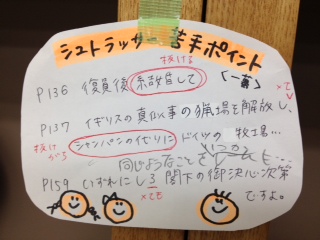 シュトラッサー苦手ポイント
抜ける
P136 復員後 結婚して （一幕）
×て
P137 イギリスの真似事の猟場を解放し、
抜けがち
シャンパンのイせりに ドイツの 牧場…
同じようなことを
P159 いずれにしろ 閣下の御決心次第
×ても
ですよ。